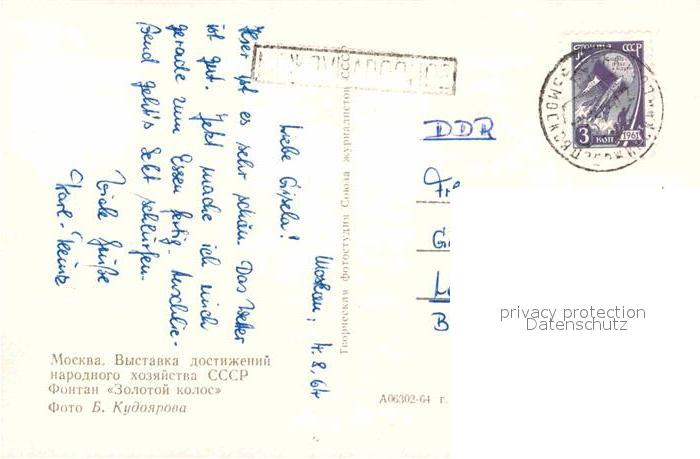 Moskau, 4.8.64
Liebe Gisela!
Hier ist es sehr schön. Das Wetter
ist gut. Jetzt mache ich mich
gerade zum Essen fertig. Anschlie-
ßend geht's Sekt schlürfen.
Viele Grüße
Karl-Heinz
Москва. Выставка достижений
народного хозяйства СССР
Фонтан «Золотой колос»
Фото Б. Кудоярова
Творческая фотостудия Союза журналистов СССР
А06302-64 г.
DDR
B
ПОЧТА СССР
3 КОП
1961
privacy protection
Datenschutz